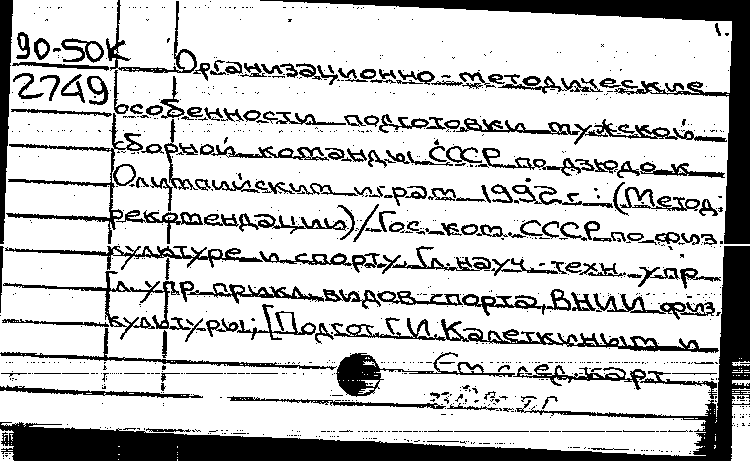 1.
90-50К Организационно-методические
2749 особенности подготовки мужской
сборной команды СССР по дзюдо к
Олимпийским играм 1992 г.: (Метод.
рекомендации)/Гос. ком. СССР по физ.
культуре и спорту. Гл. науч.-техн. упр
Гл. упр прикл. видов спорта, ВНИИ физ.
культуры; [Подгот. Г.И. Калеткиным и
См след. карт.